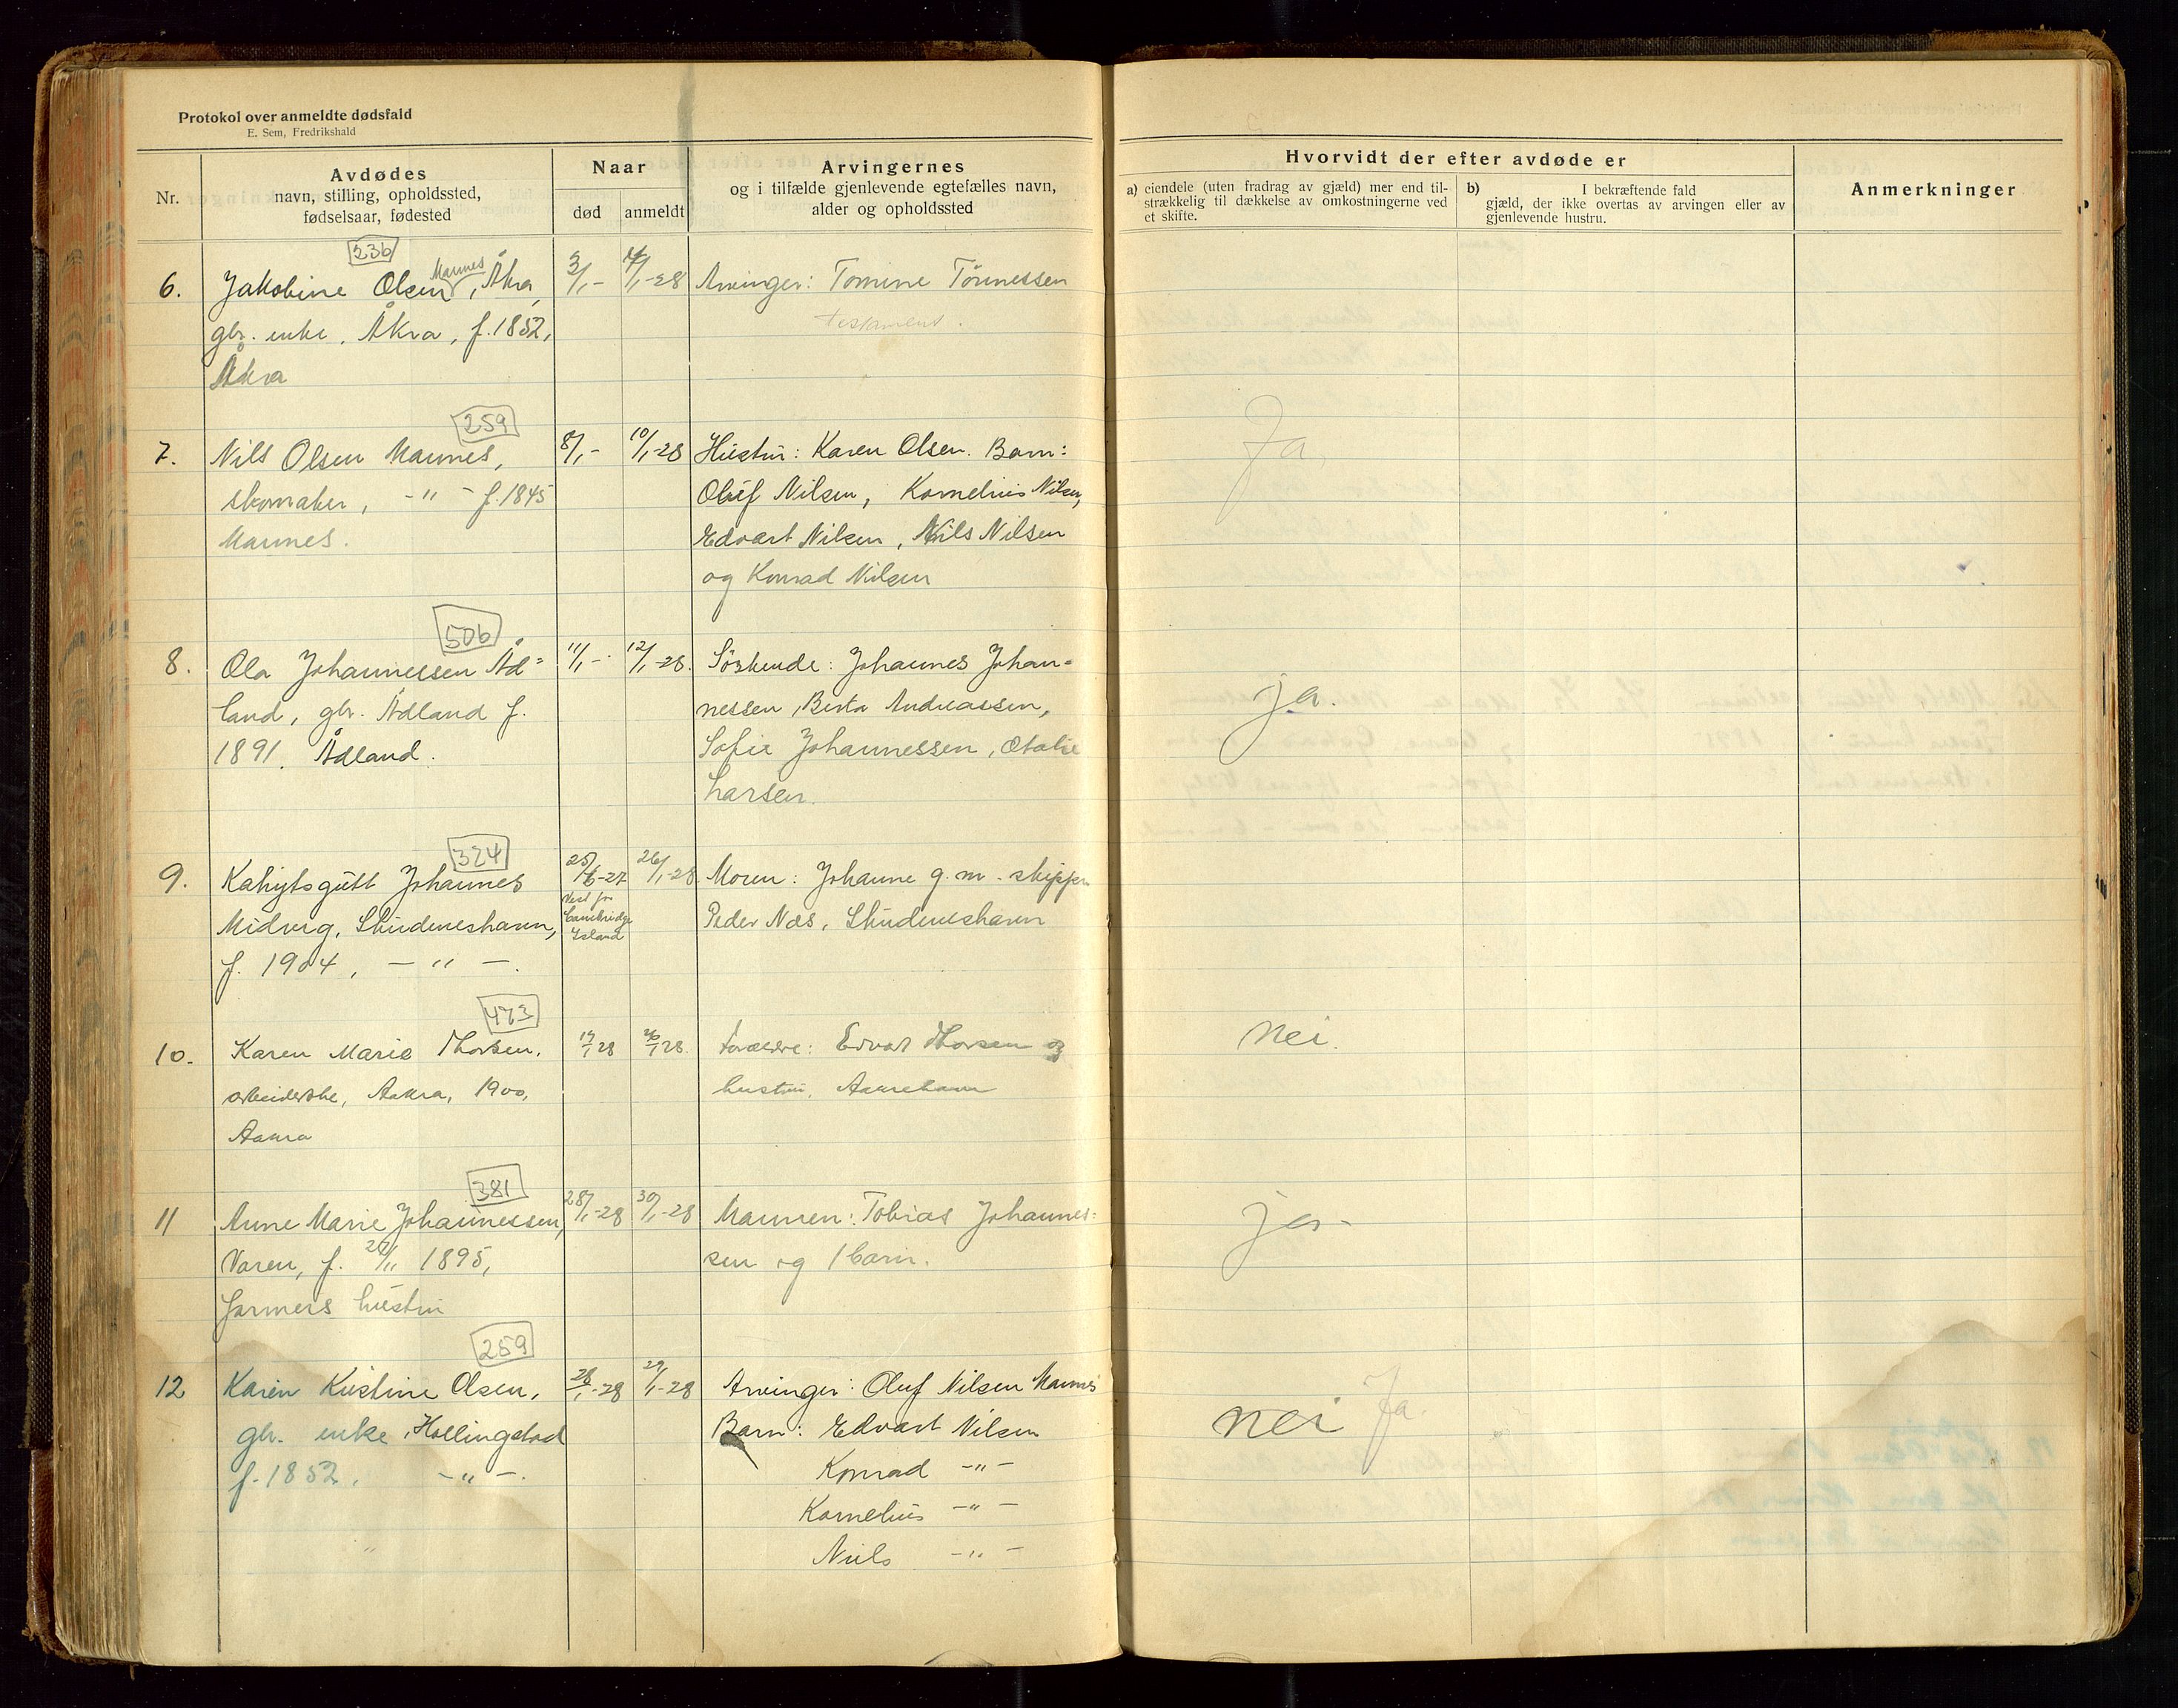 Protokol over anmeldte dødsfald
E. Sem, Fredrikshald
Nr.
Avdødes
navn, stilling, opholdssted,
fødselsaar, fødested
Naar
død
anmeldt
Arvingernes
og i tilfælde gjenlevende egtefælles navn,
alder og opholdssted
Hvorvidt der efter avdøde er
a) eiendele (uten fradrag av gjæld) mer end til-
strækkelig til dækkelse av omkostningerne ved
et skifte.
b) I bekræftende fald
gjæld, der ikke overtas av arvingen eller av
gjenlevende hustru.
Anmerkninger
236
6. Jakobine Olsen Mannes, Åkra, 3/1 - 4/1-28 Arvinger: Tomine Tönnessen
gbr. enke, Åkra, f. 1852, testament.
Åkra
259
7. Nils Olsen Mannes, 8/1 - 10/1-28 Hustru: Karen Olsen. Barn: Ja,
skomaker, -"- f. 1845 Oluf Nilsen, Kornelius Nilsen,
Mannes. Edvart Nilsen, Nils Nilsen
og Konrad Nilsen
506
8. Ola Johannessen Åd= 11/1 - 12/1-28. Söskende: Johannes Johan=
land, gbr. Ådland f. nessen, Berta Andreassen, ja.
1891. Ådland. Sofie Johannessen, Otalie
Larsen.
324
9. Kahytsgutt Johannes 25/6-27 26/1-28 Moren: Johanne g. m. skipper
Midveg, Skudeneshavn, Vest for Cambridge Island Peder Næs, Skudeneshavn
f. 1904, - " -.
473
10. Karen Marie Thorsen, 17/1 28 26/1 28. Foræeldre: Edvard Thorsen og nei.
arbeiderske, Aakra, 1900, hustru, Aakrehavn
Aakra
381
11 Anne Marie Johannessen, 28/1-28 30/1-28 Mannen: Tobias Johannes= ja-
Varen, f. 20/11 1895, sen og 1 barn.
farmers hustru
259
12 Karen Kristine Olsen, 28/1-28 29/1-28 Arvinger: Oluf Nilsen Mannes
gbr. enke, Hollingstad Barn: Edvart Nilsen nei Ja.
f. 1852, -"-. Konrad -"-
Kornelius -"-
Niels -"-